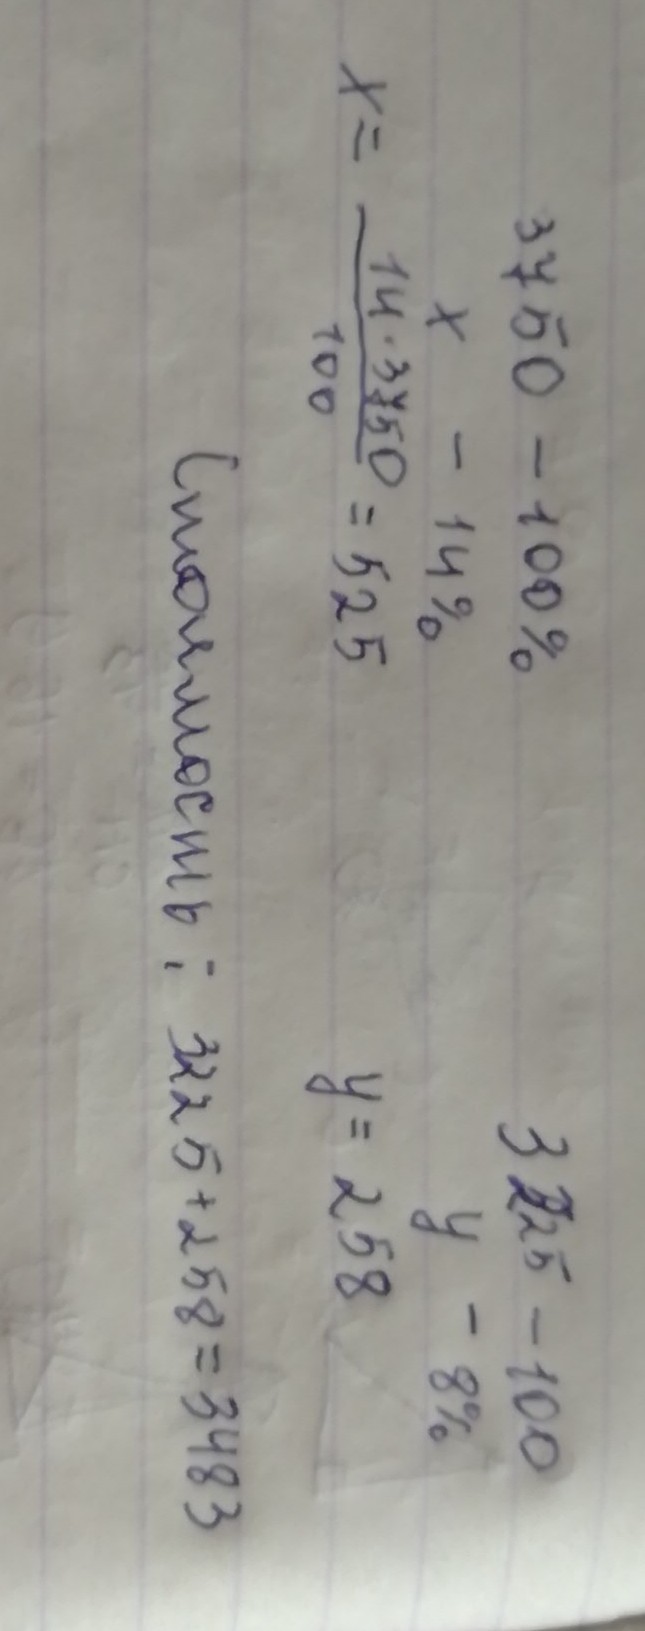 3750 - 100%
x - 14%
x = 14 · 3750 / 100 = 525
3225 - 100
y - 8%
y = 258
Стоимость: 3225 + 258 = 3483